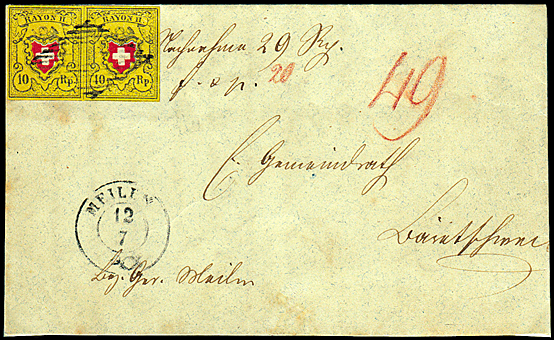 RAYON II RAYON II
10 Rp. 10 Rp.
Nachnahme 29 Rp.
f. & p. 20
49
E. Gemeindrath
Bäretschwei
MEILEN
12
7
Bez. Ger. Meilen